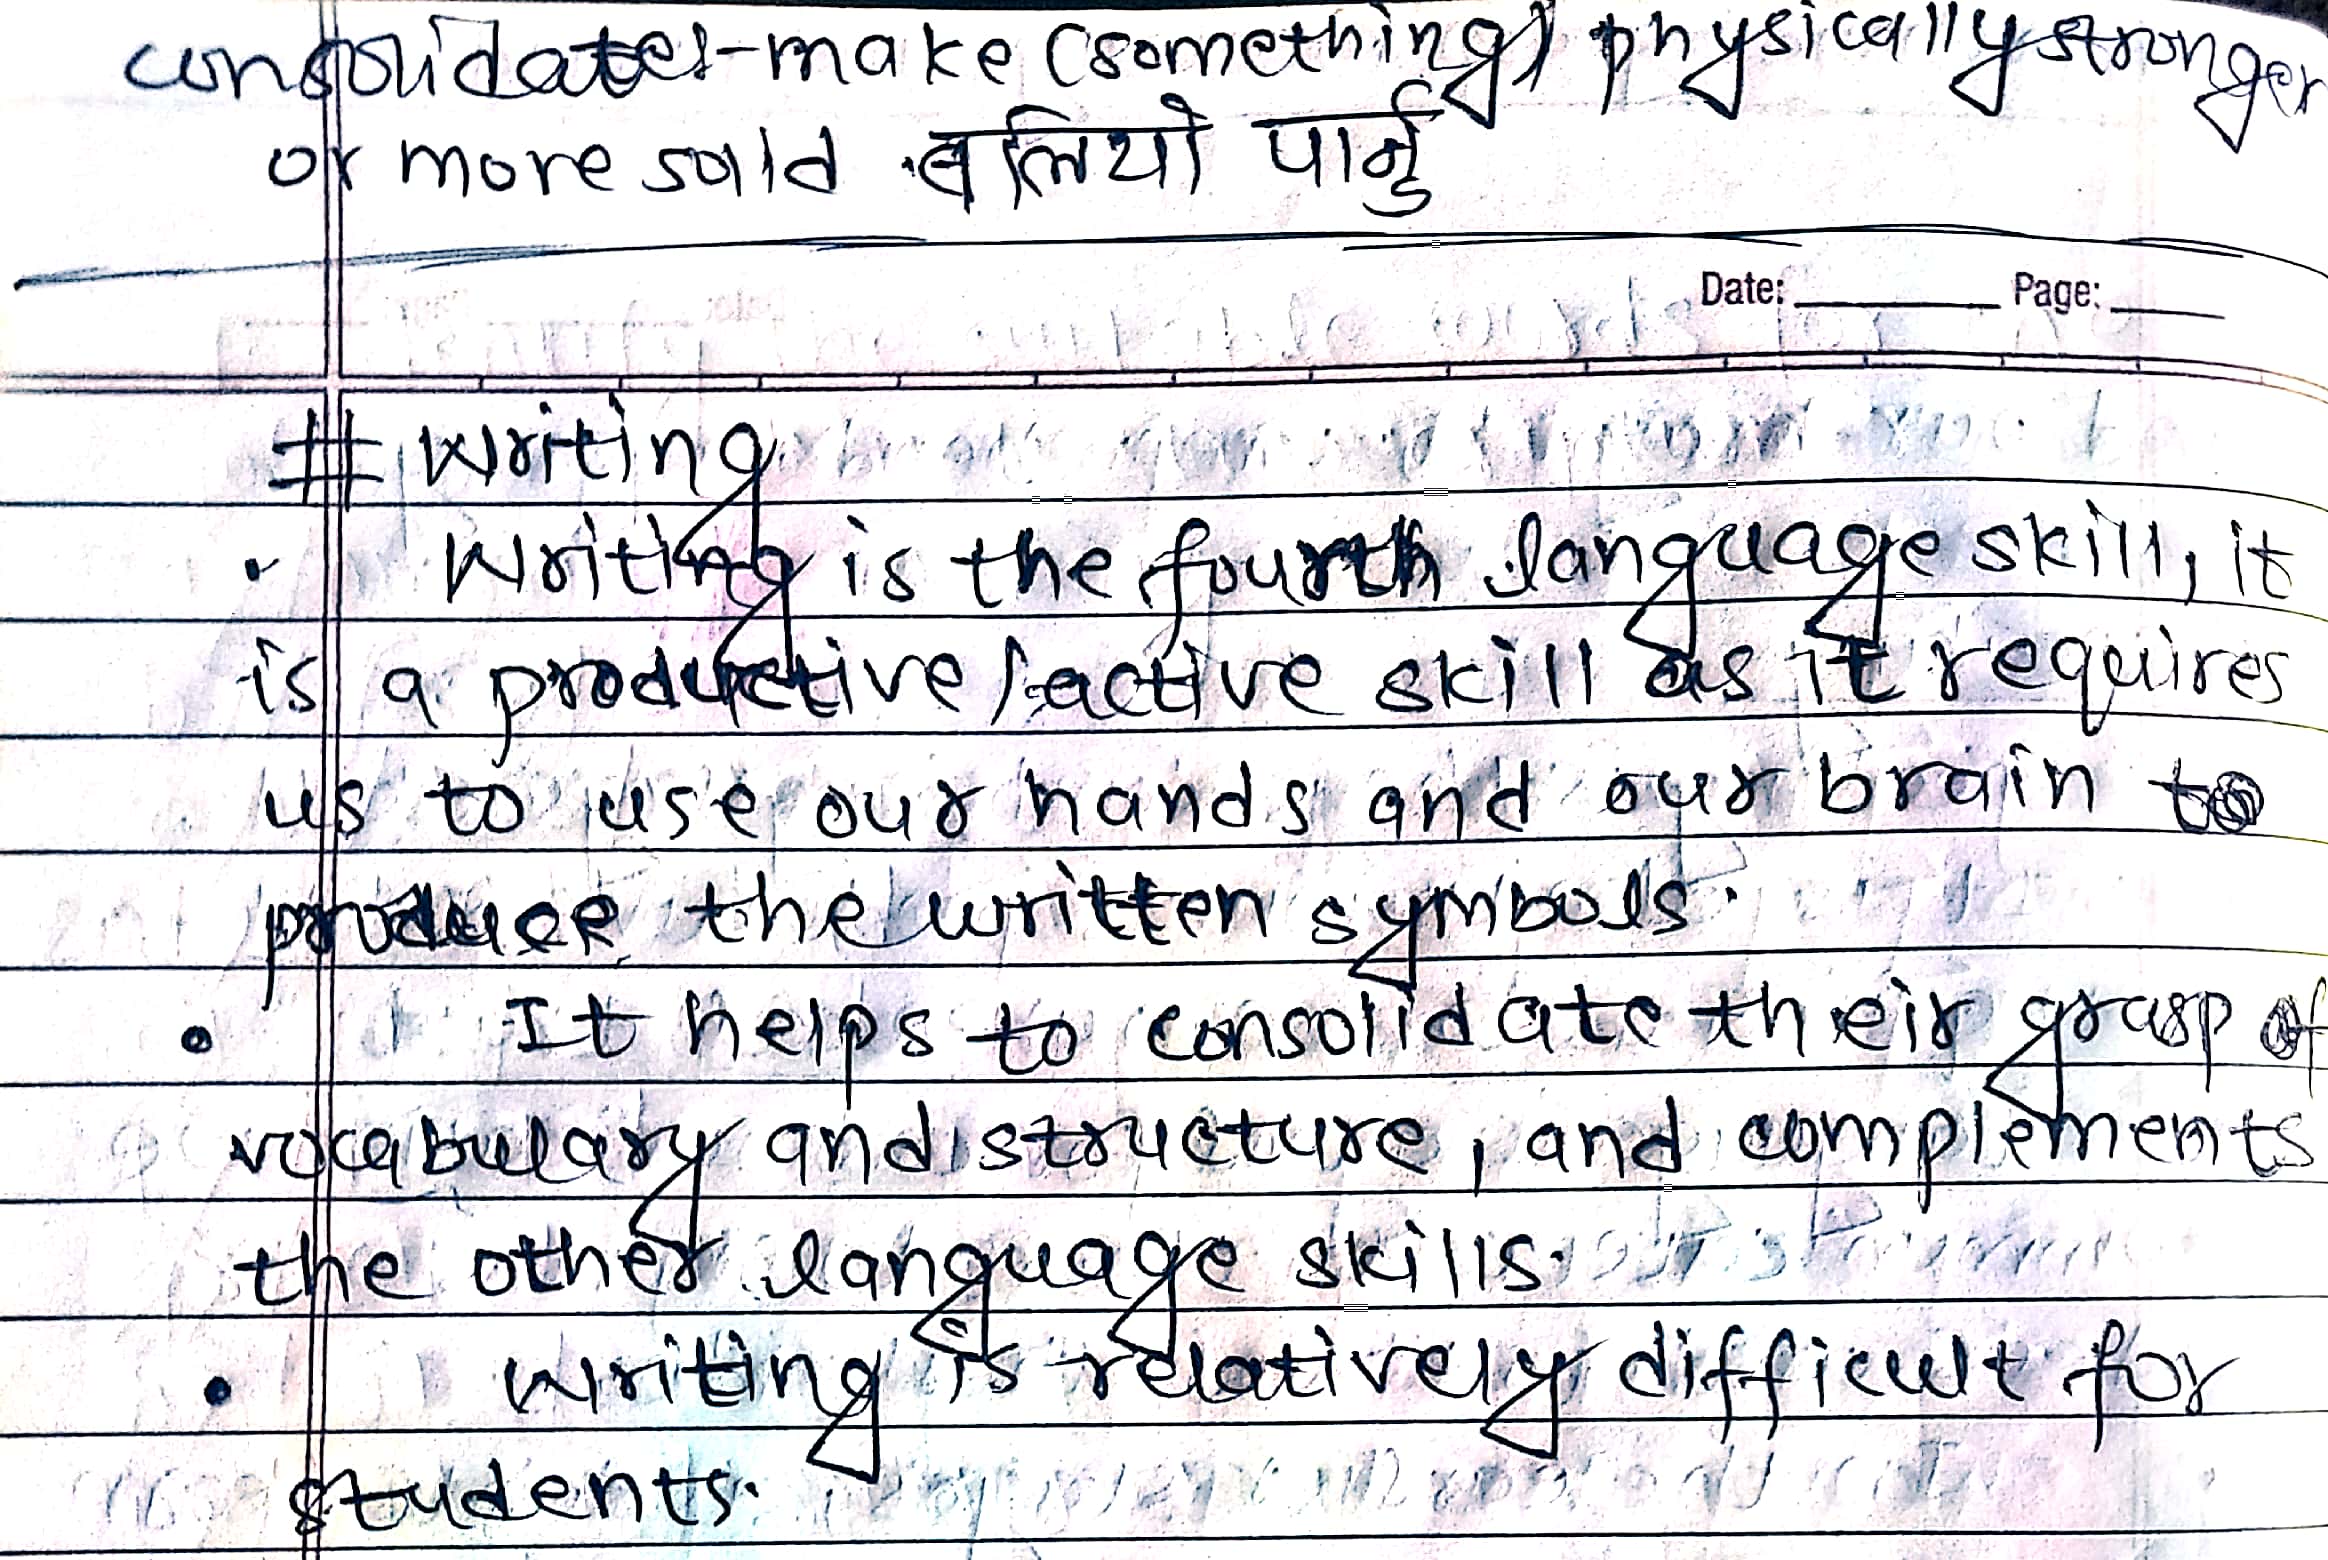 consolidates-make (something) physically stronger
or more solid बलियो पार्नु
Date: Page:
# Writing
• Writing is the fourth language skill, it
is a productive/active skill as it requires
us to use our hands and our brain to
produce the written symbols.
• It helps to consolidate their grasp of
vocabulary and structure, and complements
the other language skills.
• Writing is relatively difficult for
students.